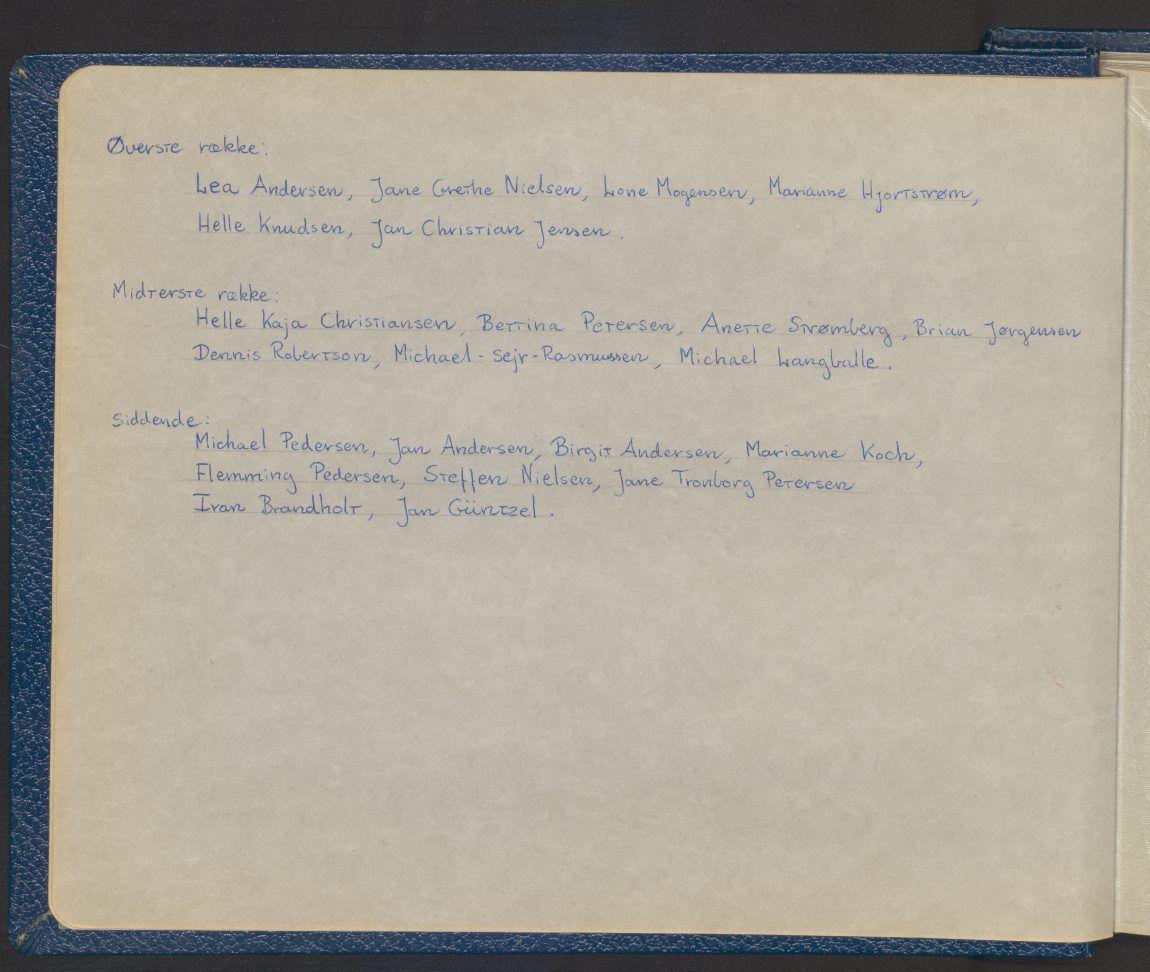 Øverste række:
Lea Andersen, Jane Grethe Nielsen, Lone Mogensen, Marianne Hjortstrøm,
Helle Knudsen, Jan Christian Jensen.
Midterste række:
Helle Kaja Christiansen, Bettina Petersen, Anette Strømberg, Brian Jørgensen
Dennis Robertson, Michael-Sejr-Rasmussen, Michael Langballe.
Siddende:
Michael Pedersen, Jan Andersen, Birgit Andersen, Marianne Koch,
Flemming Pedersen, Steffen Nielsen, Jane Tronborg Petersen
Ivan Brandholt, Jan Güntzel.